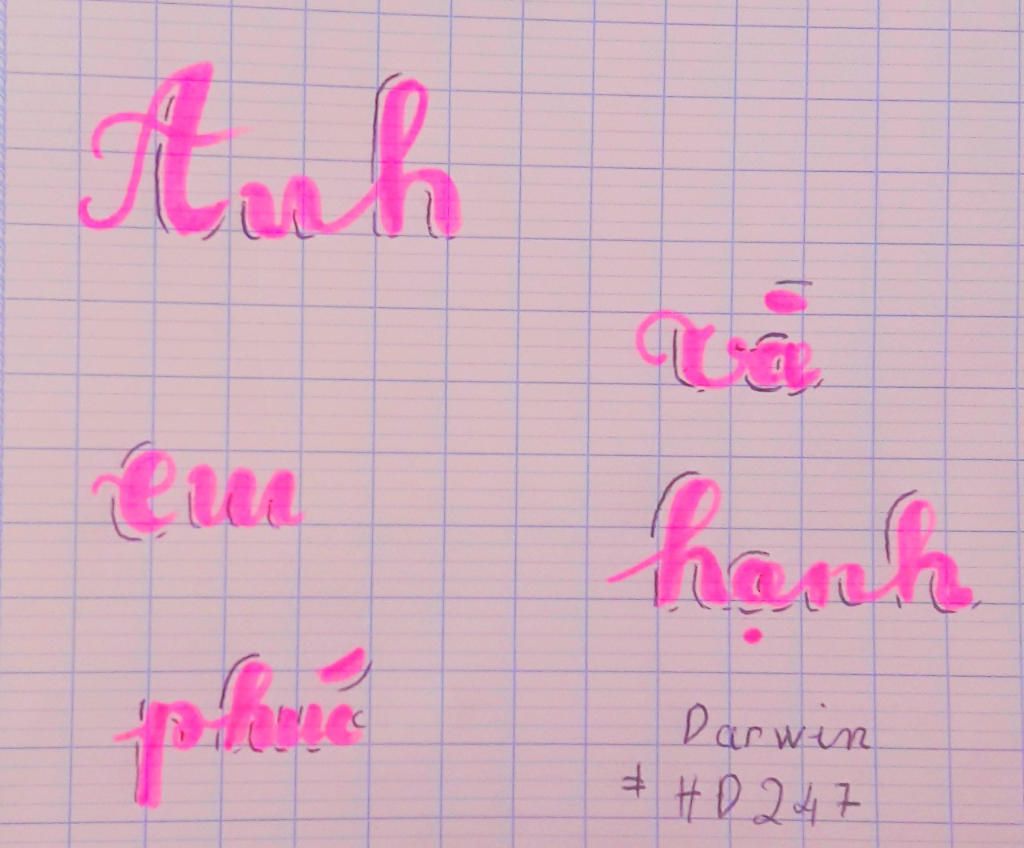 Anh
và
em
hạnh
phúc
Darwin
# HD247